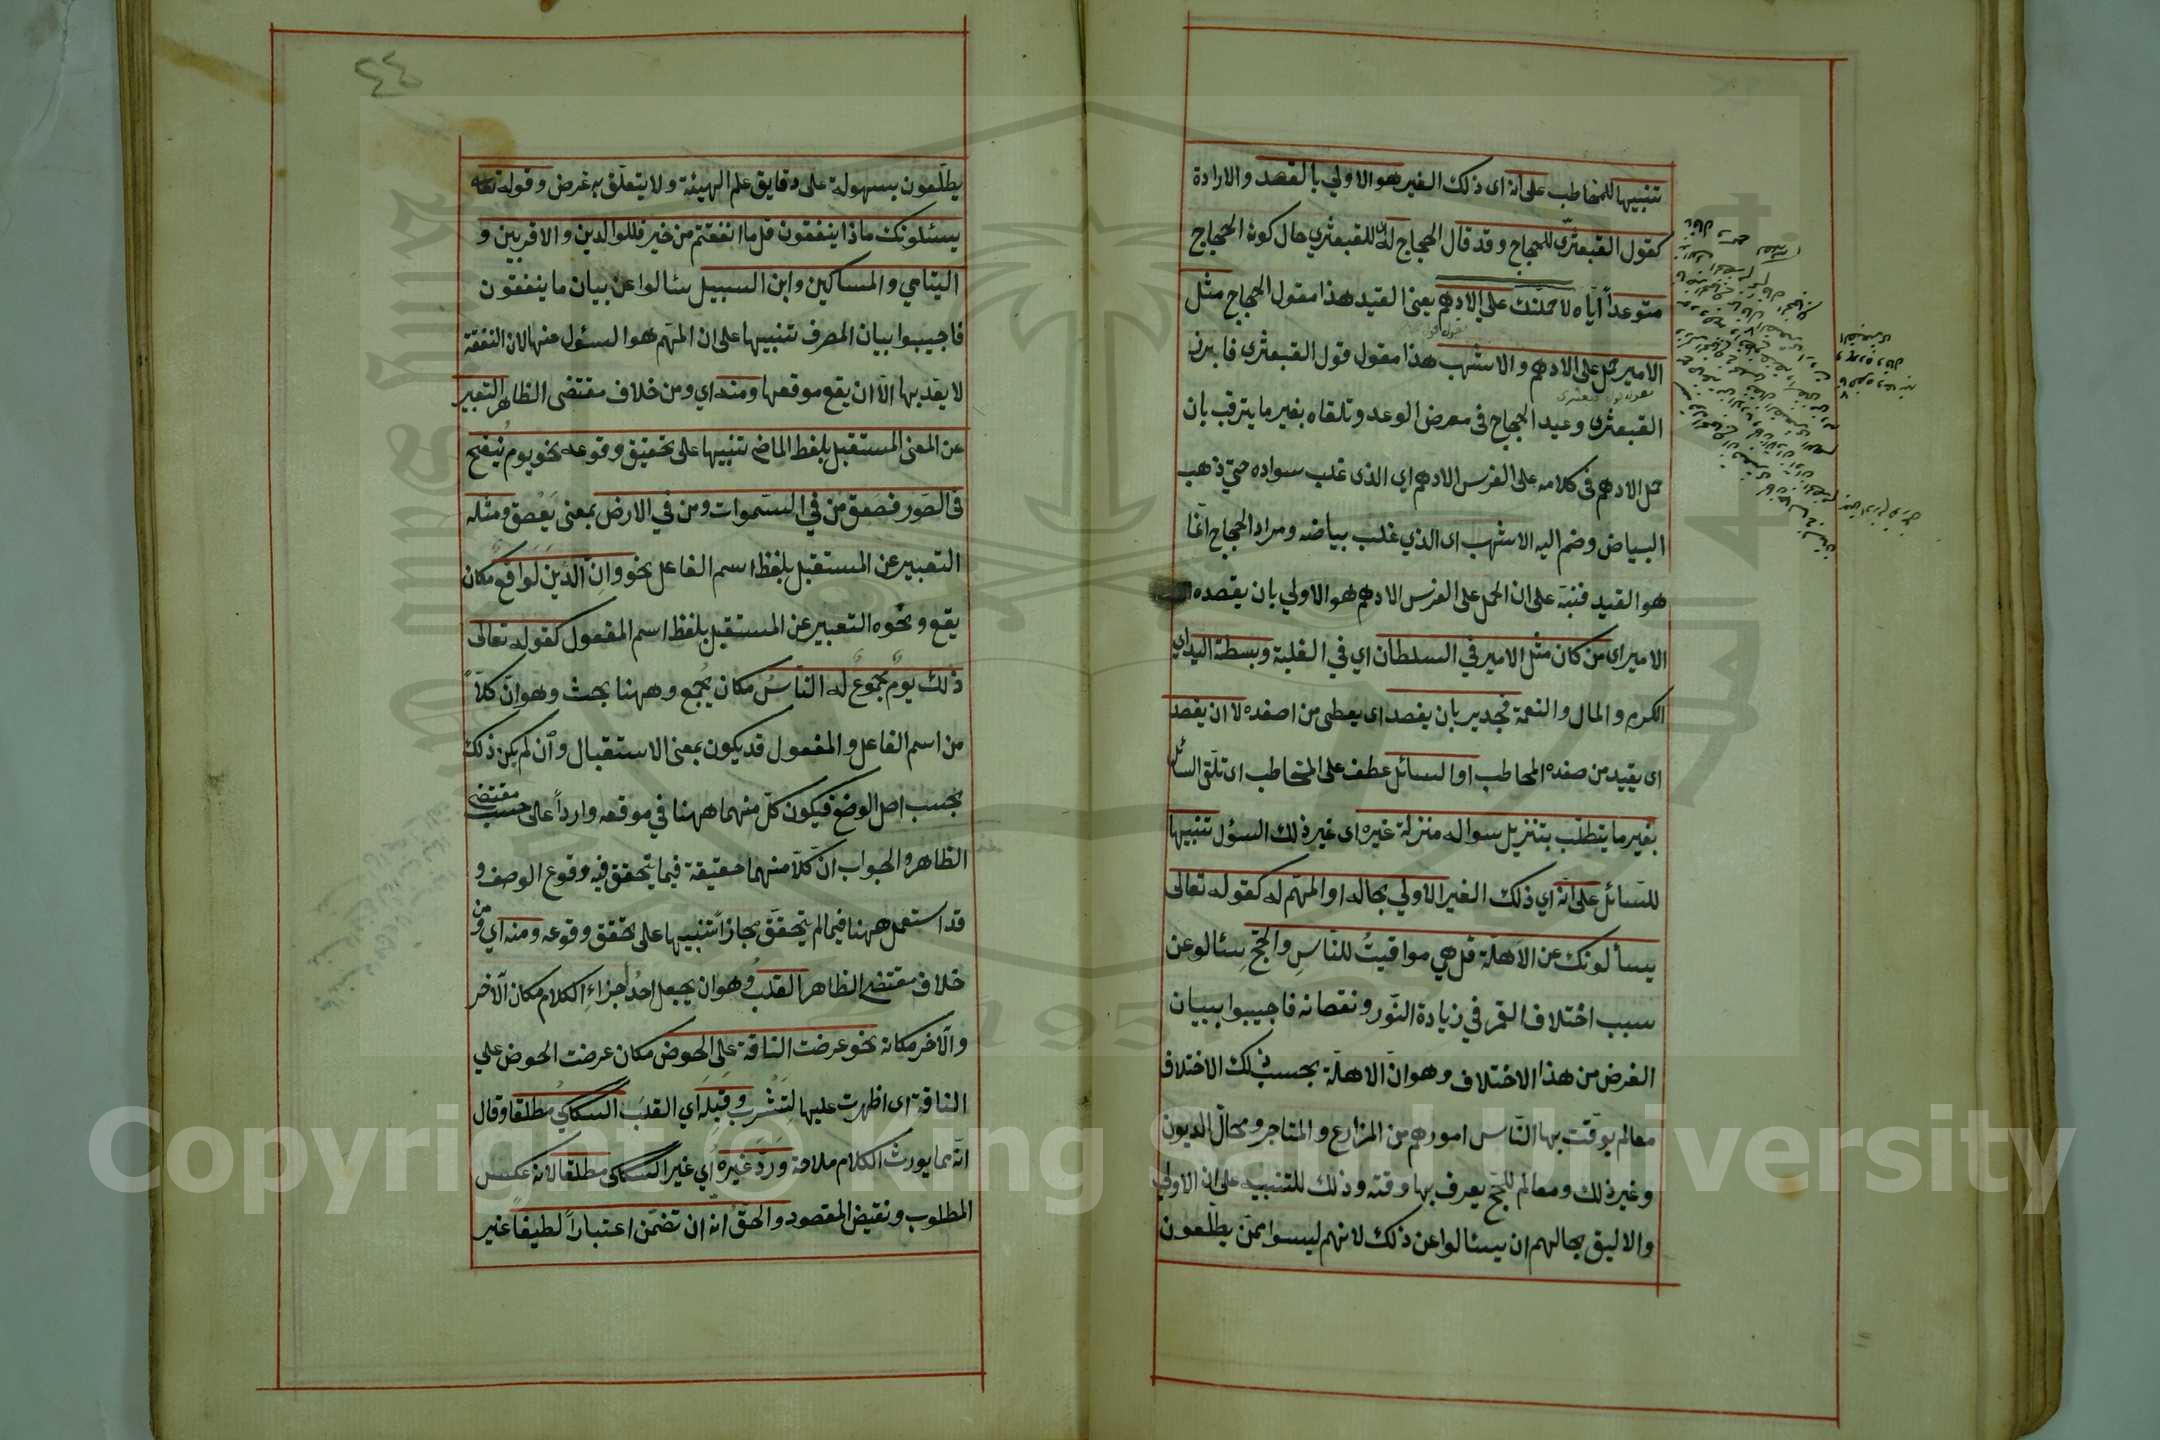 تنبيها للمخاطب على انه اى ذلك الغير هو الاولي بالقصد والارادة
كقول القبعثري للحجاج وقد قال الحجاج له اى للقبعثري حال كون الحجاج
متوعداً ايّاه لاحملنك على الادهم يعنى القيد هذا مقول الحجاج مثل
الامير حمل على الادهم والاشهب هذا مقول قول القبعثرى فابرز
القبعثرى وعيد الحجاج في معرض الوعد وتلقاه بغير ما يترقب بان
حمل الادهم فى كلامه على الفرس الادهم اي الذى غلب سواده حتي ذهب
البياض وضم اليه الاشهب اى الذي غلب بياضه ومراد الحجاج انما
هو القيد فنبه على ان الحمل على الفرس الادهم هو الاولي بان يقصده
الامير اى من كان مثل الامير في السلطان اي في الغلبة وبسطة اليد اي
الكرم والمال والنعمة فجدير بان يصفد اى يعطى من اصفده لا ان يصفد
اى يقيد من صفده المخاطب او السائل عطف على المخاطب اى تلقى السائل
بغير ما يتطلب بتنزيل سواله منزلة غيره اى غير ذلك السؤل تنبيها
للسائل على انه اي ذلك الغير الاولي بحاله او المهم له كقوله تعالى
يسألونك عن الاهلّة قل هي مواقيتُ للنّاسِ والحَجّ سئالو عن
سبب اختلاف القمر في زيادة النّور ونقصانه فاجيبوا ببيان
الغرض من هذا الاختلاف وهو انّ الاهلّة بحسب ذلك الاختلاف
معالم يوقّت بها النّاس امورهم من المزارع والمتاجر ومحالّ الديون
وغير ذلك ومعالم للحجّ يعرف بها وقته وذلك للتنبيه على ان الاولي
والاليق بحالهم ان يسئالوا عن ذلك لانهم ليسوا ممّن يطلّعون
٤٤
يطلّعون بسهولة على دقايق علم الهيئة ولا يتعلّق به غرض وقوله تعه
يسئلونك ماذا ينفقون قل ما انفقتم من خير فللوالدين والاقربين و
اليتامي والمساكين وابن السبيل سئالوا عن بيان ما ينفقون
فاجيبوا ببيان المصرف تنبيها على ان المهّم هو السئول عنها لان النفقة
لا يعّد بها الّا ان يقع موقعها ومنه اي ومن خلاف مقتضى الظاهر التعبير
عن المعنى المستقبل بلفظ الماضى تنبيها على تحقيق وقوعه نحو يوم يُنفخ
فى الصّور فصَعِقَ من في السّموات ومن في الارض بمعنى يَصْعق ومثله
التعبير عن المستقبل بلفظ اسم الفاعل نحو وانّ الدّينَ لَوَاقعٌ مكان
يقع ونحوه التعبير عن المستقبل بلفظ اسم المفعول كقوله تعالى
ذلك يومٌ مجموعٌ له النّاسُ مكان يُجمع وههنا بحث وهو انّ كلاً
من اسم الفاعل والمفعول قد يكون بمعنى الاستقبال وان لم يكن ذلك
بحسب اصل الوضع فيكون كلّ منهما ههنا في موقعه وارداً على حسب مقتضى
الظاهر والجواب انّ كلّا منهما حقيقة فيما يتحقق فيه وقوع الوصف و
قد استعمل ههنا فيما لم يتحقّق مجازاً تنبيها على تحقق وقوعه ومنه اي ومن
خلاف مقتضى الظاهر القلبُ وهو ان يجعل احدُ أجزاءِ الكلام مكان الآخر
والآخر مكانه نحو عرضت الناقة على الحوض مكان عرضت الحوض علي
الناقة اى اظهرت عليها لِتَشْرب وقَبِلَه اي القلبَ السكاكيُ مطلقا وقال
انّه مما يورث الكلام ملاحة وَرَدّ غيرُهُ اي غير السكاكى مطلقا لانه عكس
المطلوب ونقيض المقصود والحقُ انه ان تضمّن اعتباراً لطيفاً غير
Copyright © King Saud University
1957